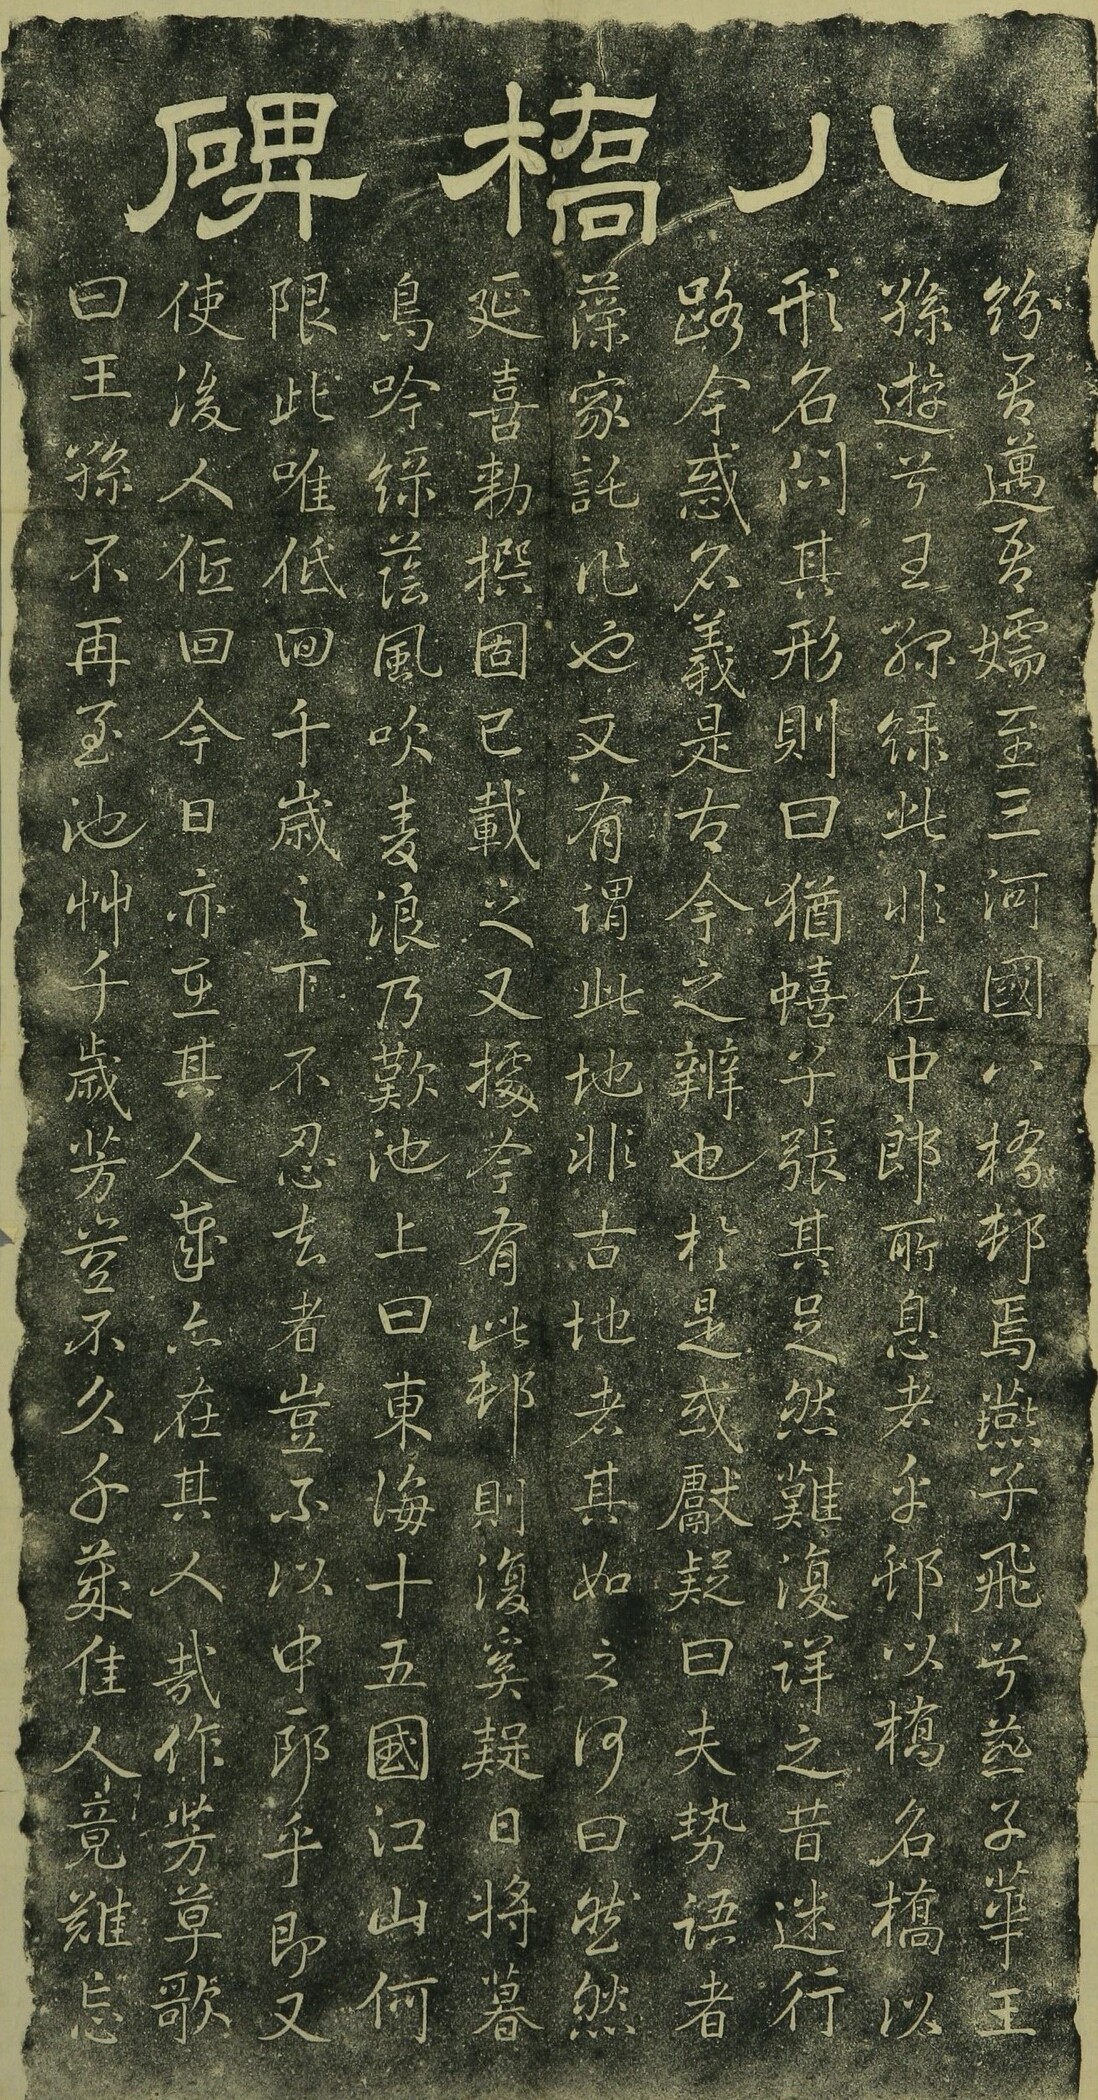 八橋碑
紛吾邁吾孺至三河國八橋邨焉燕子飛兮燕子華王
孫遊兮王孫綠此非在中郎所息者乎邨以橋名橋以
形名問其形則曰猶蟢子張其足然難復詳之昔迷行
路今惑名義是古今之辨也於是或獻疑曰夫勢語者
藻家託也又有謂此地非古地者其如之何曰然然
延喜勅撰固已載之又據今有此邨則復奚疑日將暮
鳥吟綠蔭風吹麦浪乃歎池上曰東海十五國江山何
限此唯低回千歲之下不忍去者豈不以中郎乎即又
使後人低回今日亦在其人草亦在其人哉作芳草歌
曰王孫不再至池艸千歲芳豈不久千葉佳人竟難忘